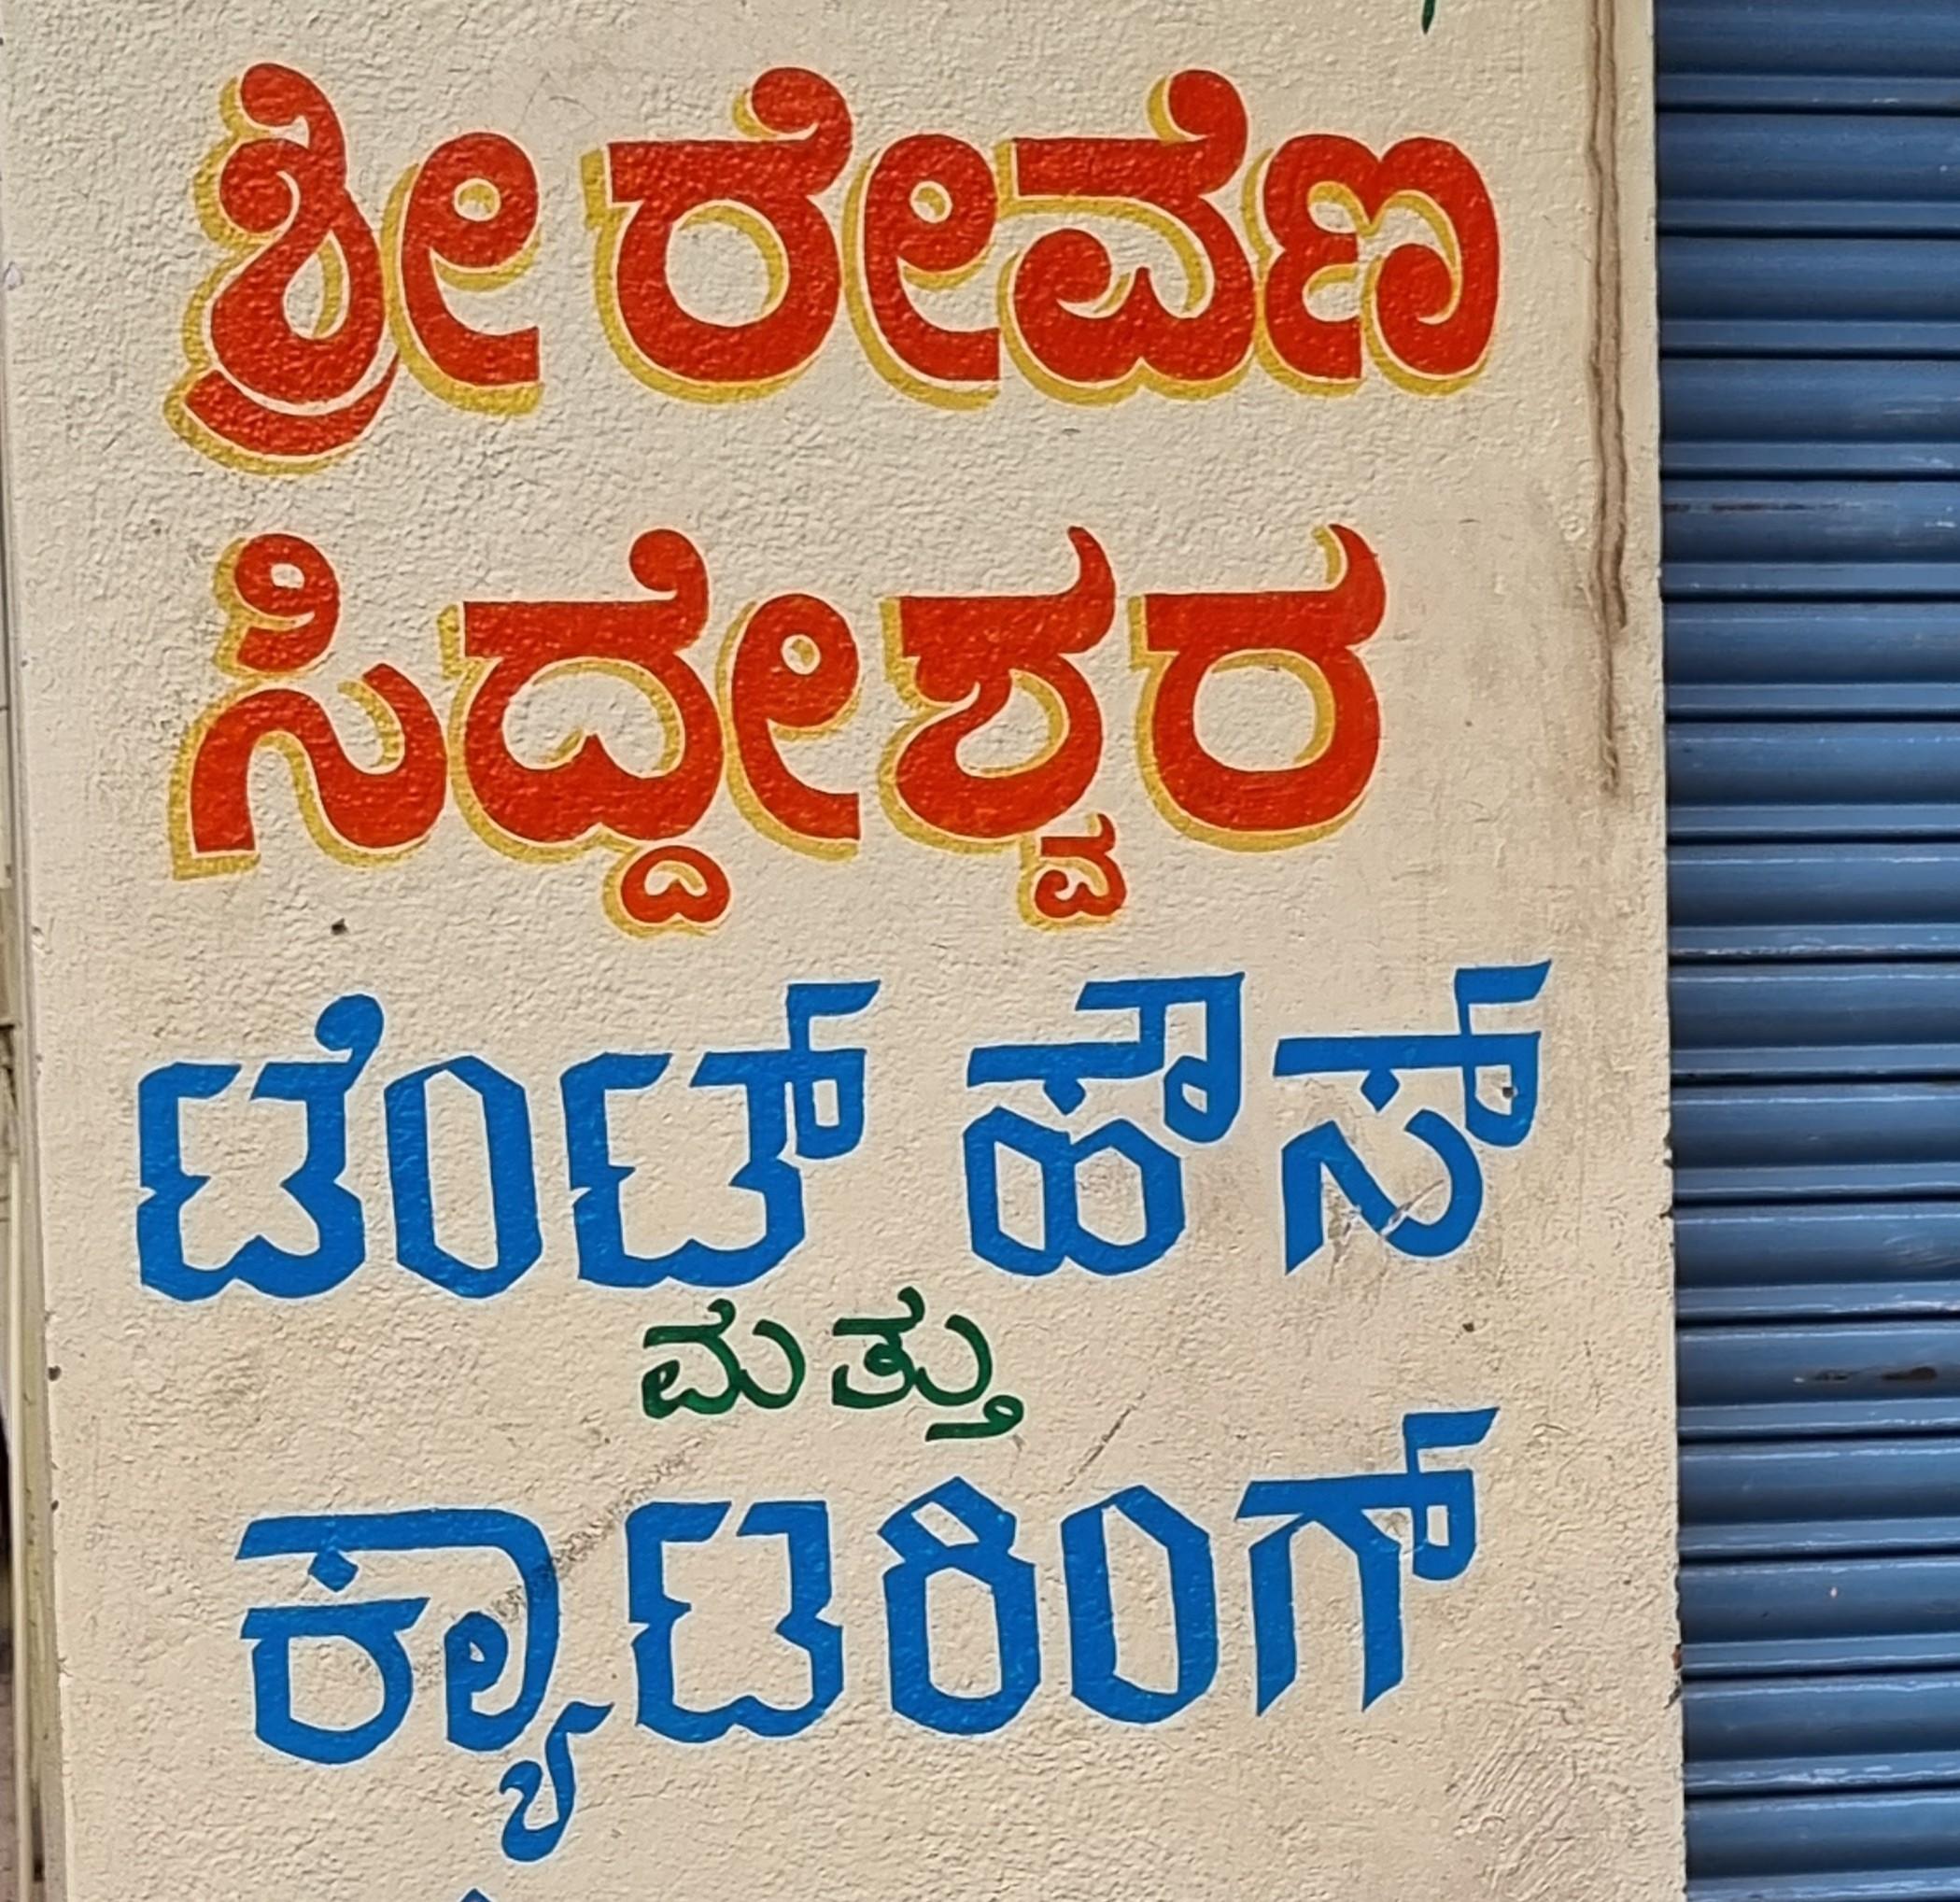 ಶ್ರೀ ರೇವೆಣ
ಸಿದ್ದೇಶ್ವರ
ಟೆಂಟ್ ಹೌಸ್
ಮತ್ತು
ಕ್ಯಾಟರಿಂಗ್